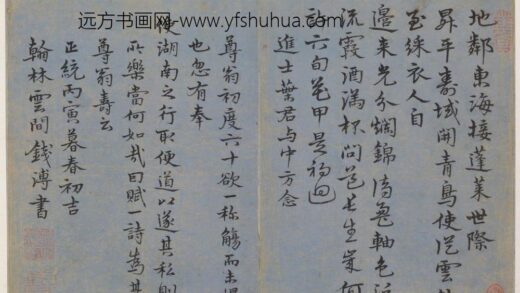 远方书画网: www.yfshuhua.com
地鄰東海接蓬萊世際
昇平壽域開青鳥使從雲
至綵衣人自
邊来光分爛錦
流霞酒滿杯問
六旬花甲是初回
進士葉君与中方念
尊翁初度六十欲一称觴而未
也忽有奉
使湖南之行取便道以遂其私
所樂當何如哉因賦一詩為其
尊翁壽云
正統丙寅暮春初吉
翰林雲間錢溥書